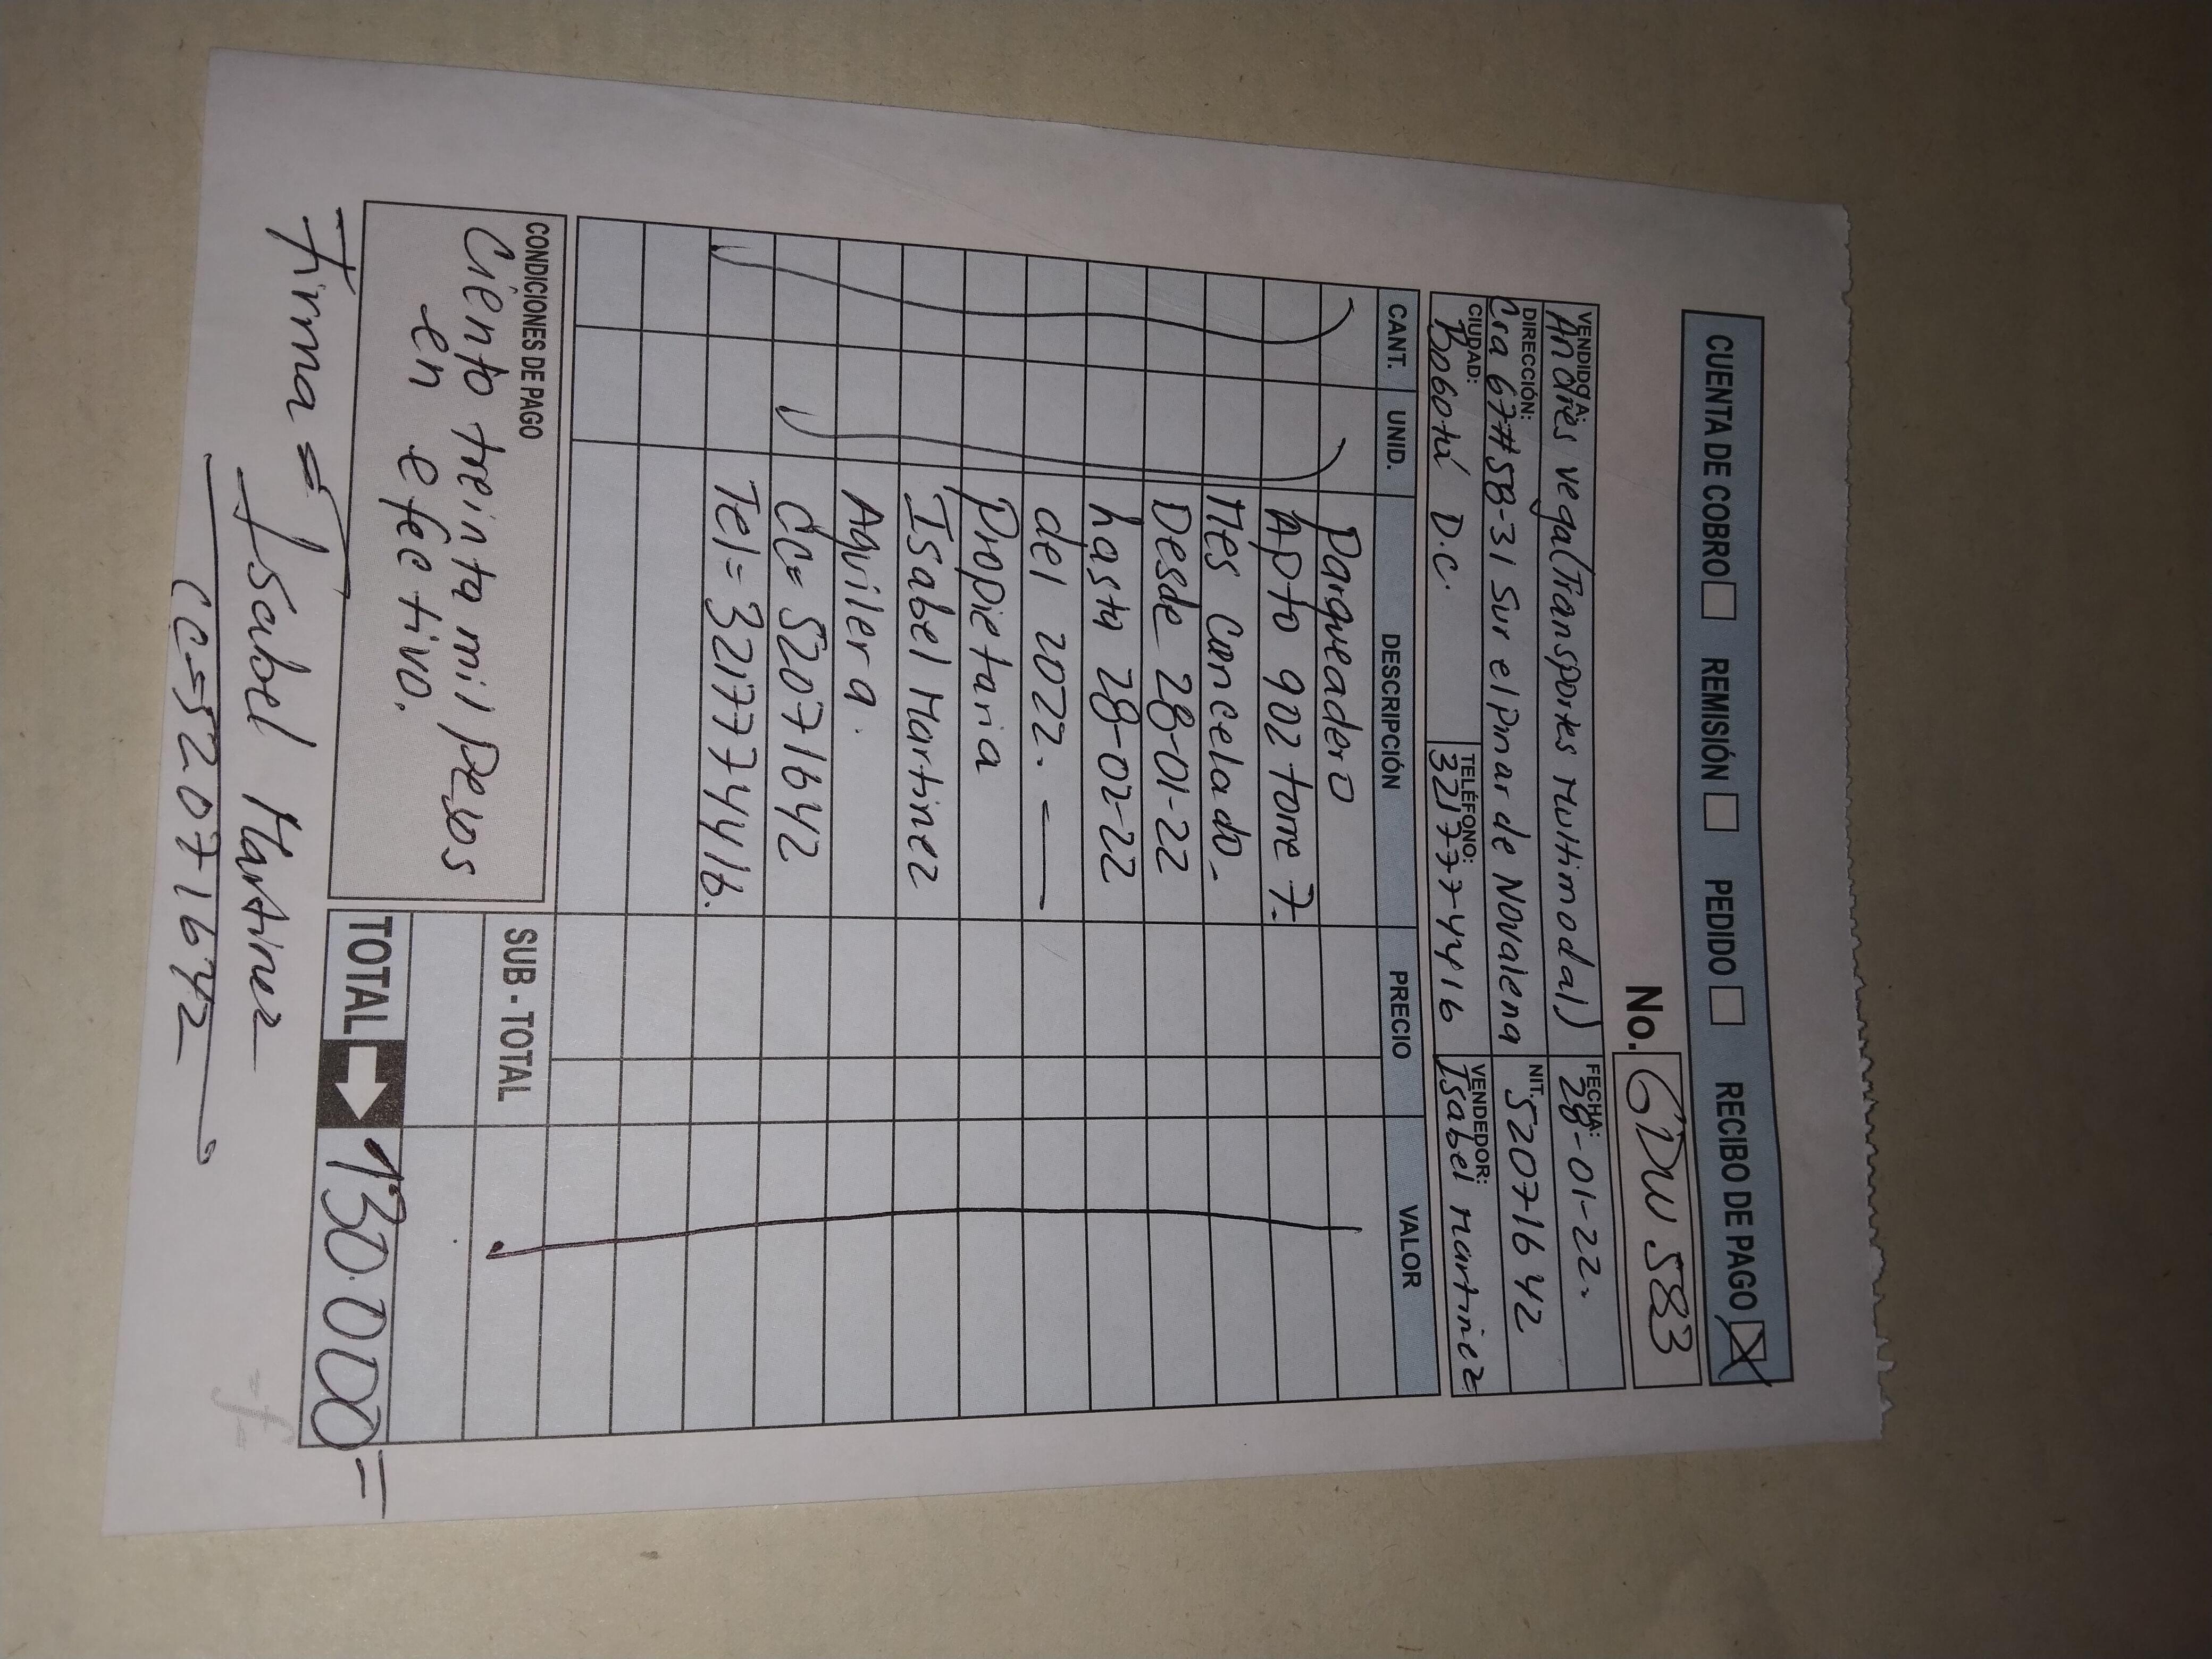 CUENTA DE COBRO REMISIÓN PEDIDO RECIBO DE PAGO X
No. GDW 583
VENDIDO A: Andrés vega (Transportes multimodal) FECHA: 28-01-22.
DIRECCIÓN: Cra 67#5B-31 Sur el Pinar de Novalena NIT. 52071642
CIUDAD: Bogotá D.C. TELÉFONO: 3217774416 VENDEDOR: Isabel Martinez
CANT. UNID. DESCRIPCIÓN PRECIO VALOR
Parqueadero
Apto 902 torre 7.
Mes Cancelado.
Desde 28-01-22
hasta 28-02-22
del 2022.
Propietaria
Isabel Martinez
Aguilera.
CC= 52071642
Tel= 3217774416.
CONDICIONES DE PAGO
Ciento treinta mil Pesos
en efectivo.
SUB - TOTAL
TOTAL 130.000=
Firma = Isabel Martinez
CC=52071642